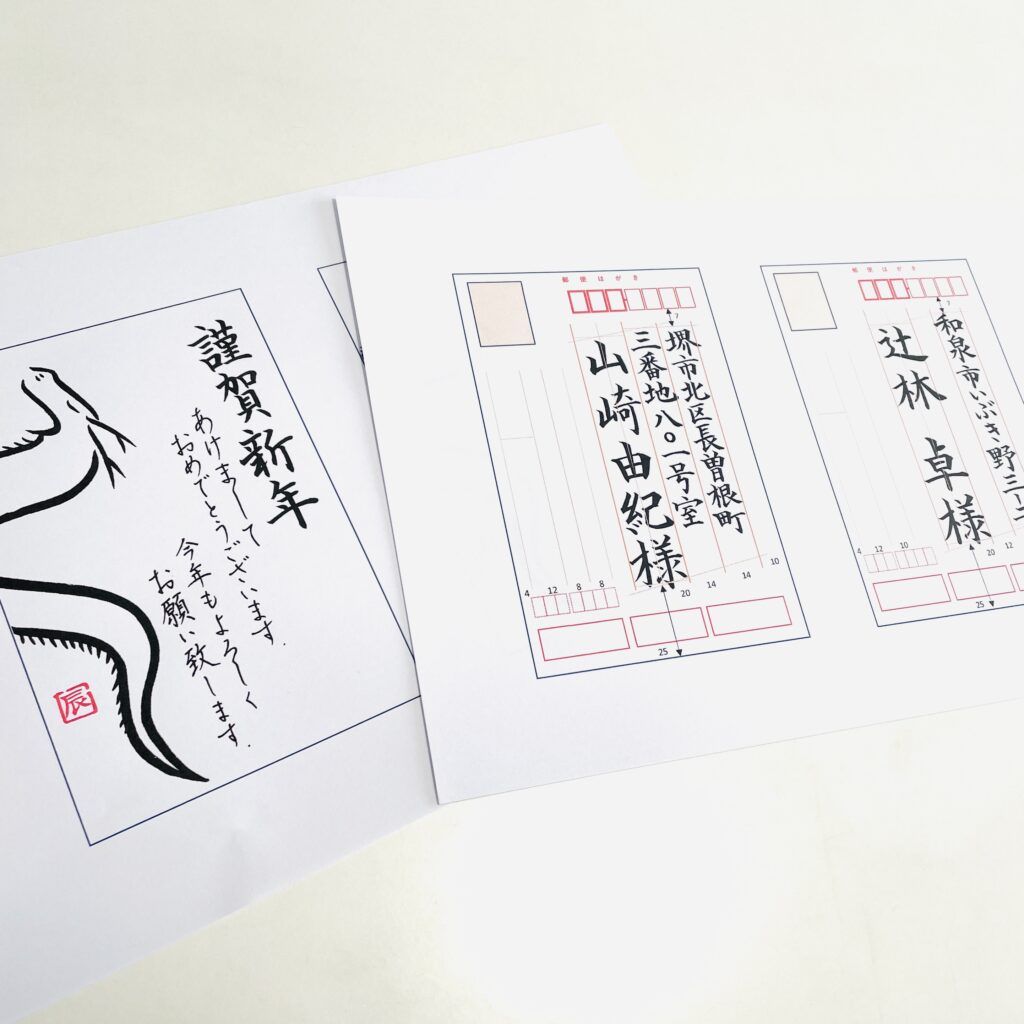 謹賀新年
あけまして
おめでとうございます.
今年もよろしく
お願い致します.
辰
郵便はがき
7
堺市北区長曽根町
三番地八〇一号室
山崎由紀様
4 12 8 8 20 14 14 10
25
郵便はがき
7
和泉市いぶき野三
辻林 卓様
4 12 10 20 12
25